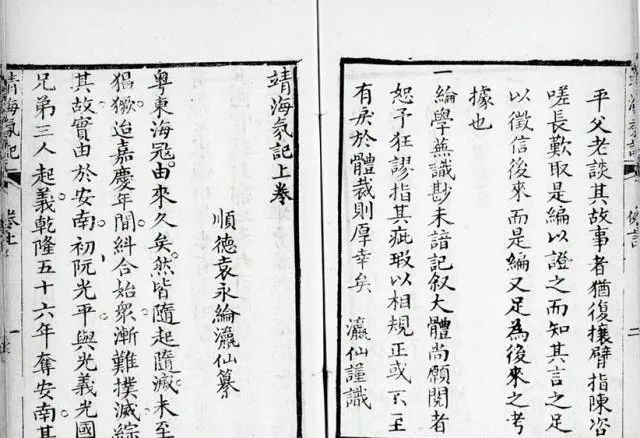 平父老談其故事者猶復攘臂指陳咨
嗟長歎取是編以證之而知其言之足
以徵信後來而是編又足為後來之考
據也
一綸學蕪識尠未諳記叙大體尚願閱者
恕予狂謬指其疵瑕以相規正或不至
有戾於體裁則厚幸矣 瀛仙謹識
靖海氛記上卷
順德袁永綸瀛仙纂
粤東海寇由來久矣然皆隨起隨滅未至
猖獗迨嘉慶年間糾合始衆漸難撲滅綜
其故實由於安南初阮光平與光義光國
兄弟三人起義乾隆五十六年奪安南其
靖海氛記
卷上
一